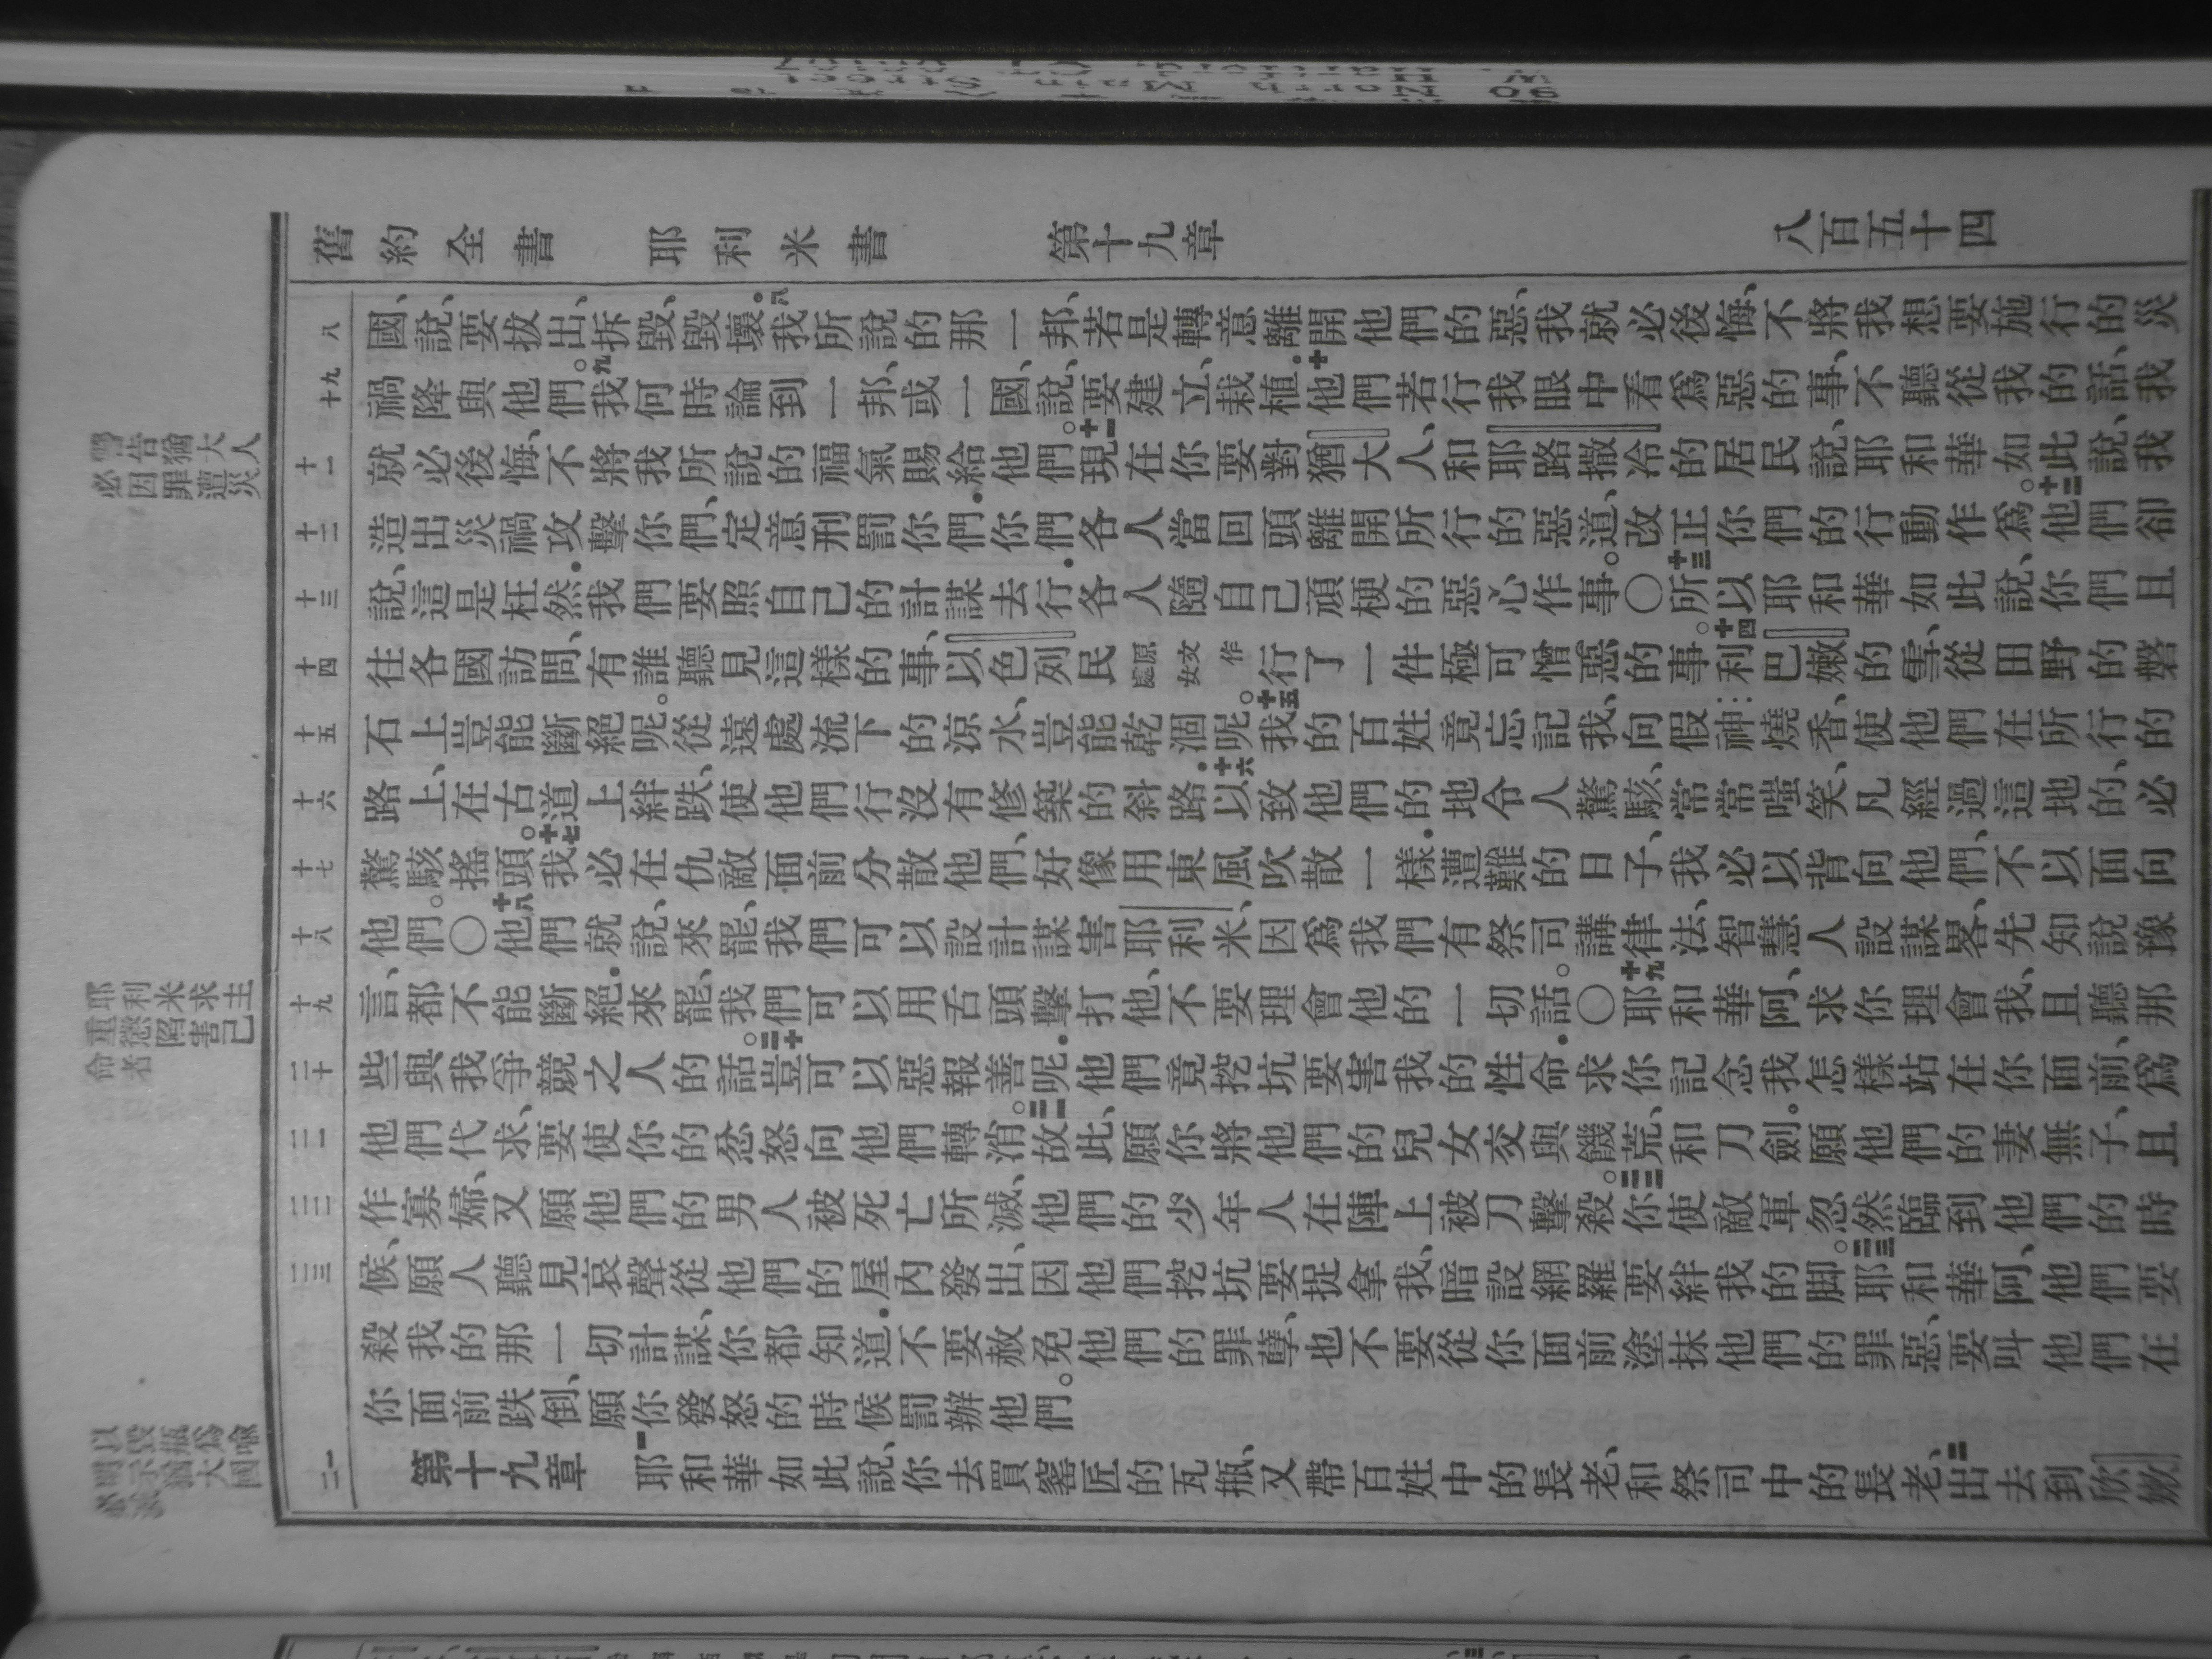 舊約全書　耶利米書　第十九章　八百五十四
八
國、說、要拔出、拆毀、毀壞。八我所說的那一邦、若是轉意離開他們的惡、我就必後悔、不將我想要施行的災
十九
禍降與他們。九我何時論到一邦、或一國、說、要建立、栽植。十他們若行我眼中看爲惡的事、不聽從我的話、我
十一
就必後悔、不將我所說的福氣賜給他們。十一現在你要對猶大人、和耶路撒冷的居民說、耶和華如此說、我
十二
造出災禍攻擊你們、定意刑罰你們．你們各人當回頭離開所行的惡道、改正你們的行動作爲。十二他們卻
十三
說、這是枉然．我們要照自己的計謀去行．各人隨自己頑梗的惡心作事。〇十三所以耶和華如此說、你們且
十四
往各國訪問、有誰聽見這樣的事、以色列民原文作處女行了一件極可憎惡的事。十四利巴嫩的雪、從田野的磐
十五
石上豈能斷絕呢。從遠處流下的涼水、豈能乾涸呢。十五我的百姓竟忘記我、向假神燒香、使他們在所行的
十六
路上、在古道上絆跌、使他們行沒有修築的斜路．十六以致他們的地令人驚駭、常常嗤笑、凡經過這地的、必
十七
驚駭搖頭。十七我必在仇敵面前分散他們、好像用東風吹散一樣．遭難的日子、我必以背向他們、不以面向
十八
他們。〇十八他們就說、來罷、我們可以設計謀害耶利米、因爲我們有祭司講律法、智慧人設謀畧、先知說豫
十九
言、都不能斷絕．來罷、我們可以用舌頭擊打他、不要理會他的一切話。〇十九耶和華阿、求你理會我、且聽那
二十
些與我爭競之人的話。二十豈可以惡報善呢．他們竟挖坑要害我的性命．求你記念我怎樣站在你面前、爲
二一
他們代求、要使你的忿怒向他們轉消。二一故此、願你將他們的兒女交與饑荒、和刀劍。願他們的妻無子、且
二二
作寡婦、又願他們的男人被死亡所滅、他們的少年人在陣上被刀擊殺。二二你使敵軍忽然臨到他們的時
二三
候、願人聽見哀聲從他們的屋內發出、因他們挖坑要捉拿我、暗設網羅要絆我的脚。二三耶和華阿、他們要
殺我的那一切計謀、你都知道．不要赦免他們的罪孽、也不要從你面前塗抹他們的罪惡、要叫他們在
你面前跌倒、願你發怒的時候罰辦他們。
一二
第十九章　一耶和華如此說、你去買窰匠的瓦瓶、又帶百姓中的長老、和祭司中的長老、二出去到欣嫩
警告猶大人
必因罪遭災
耶利米求主
重懲陷害己
命者